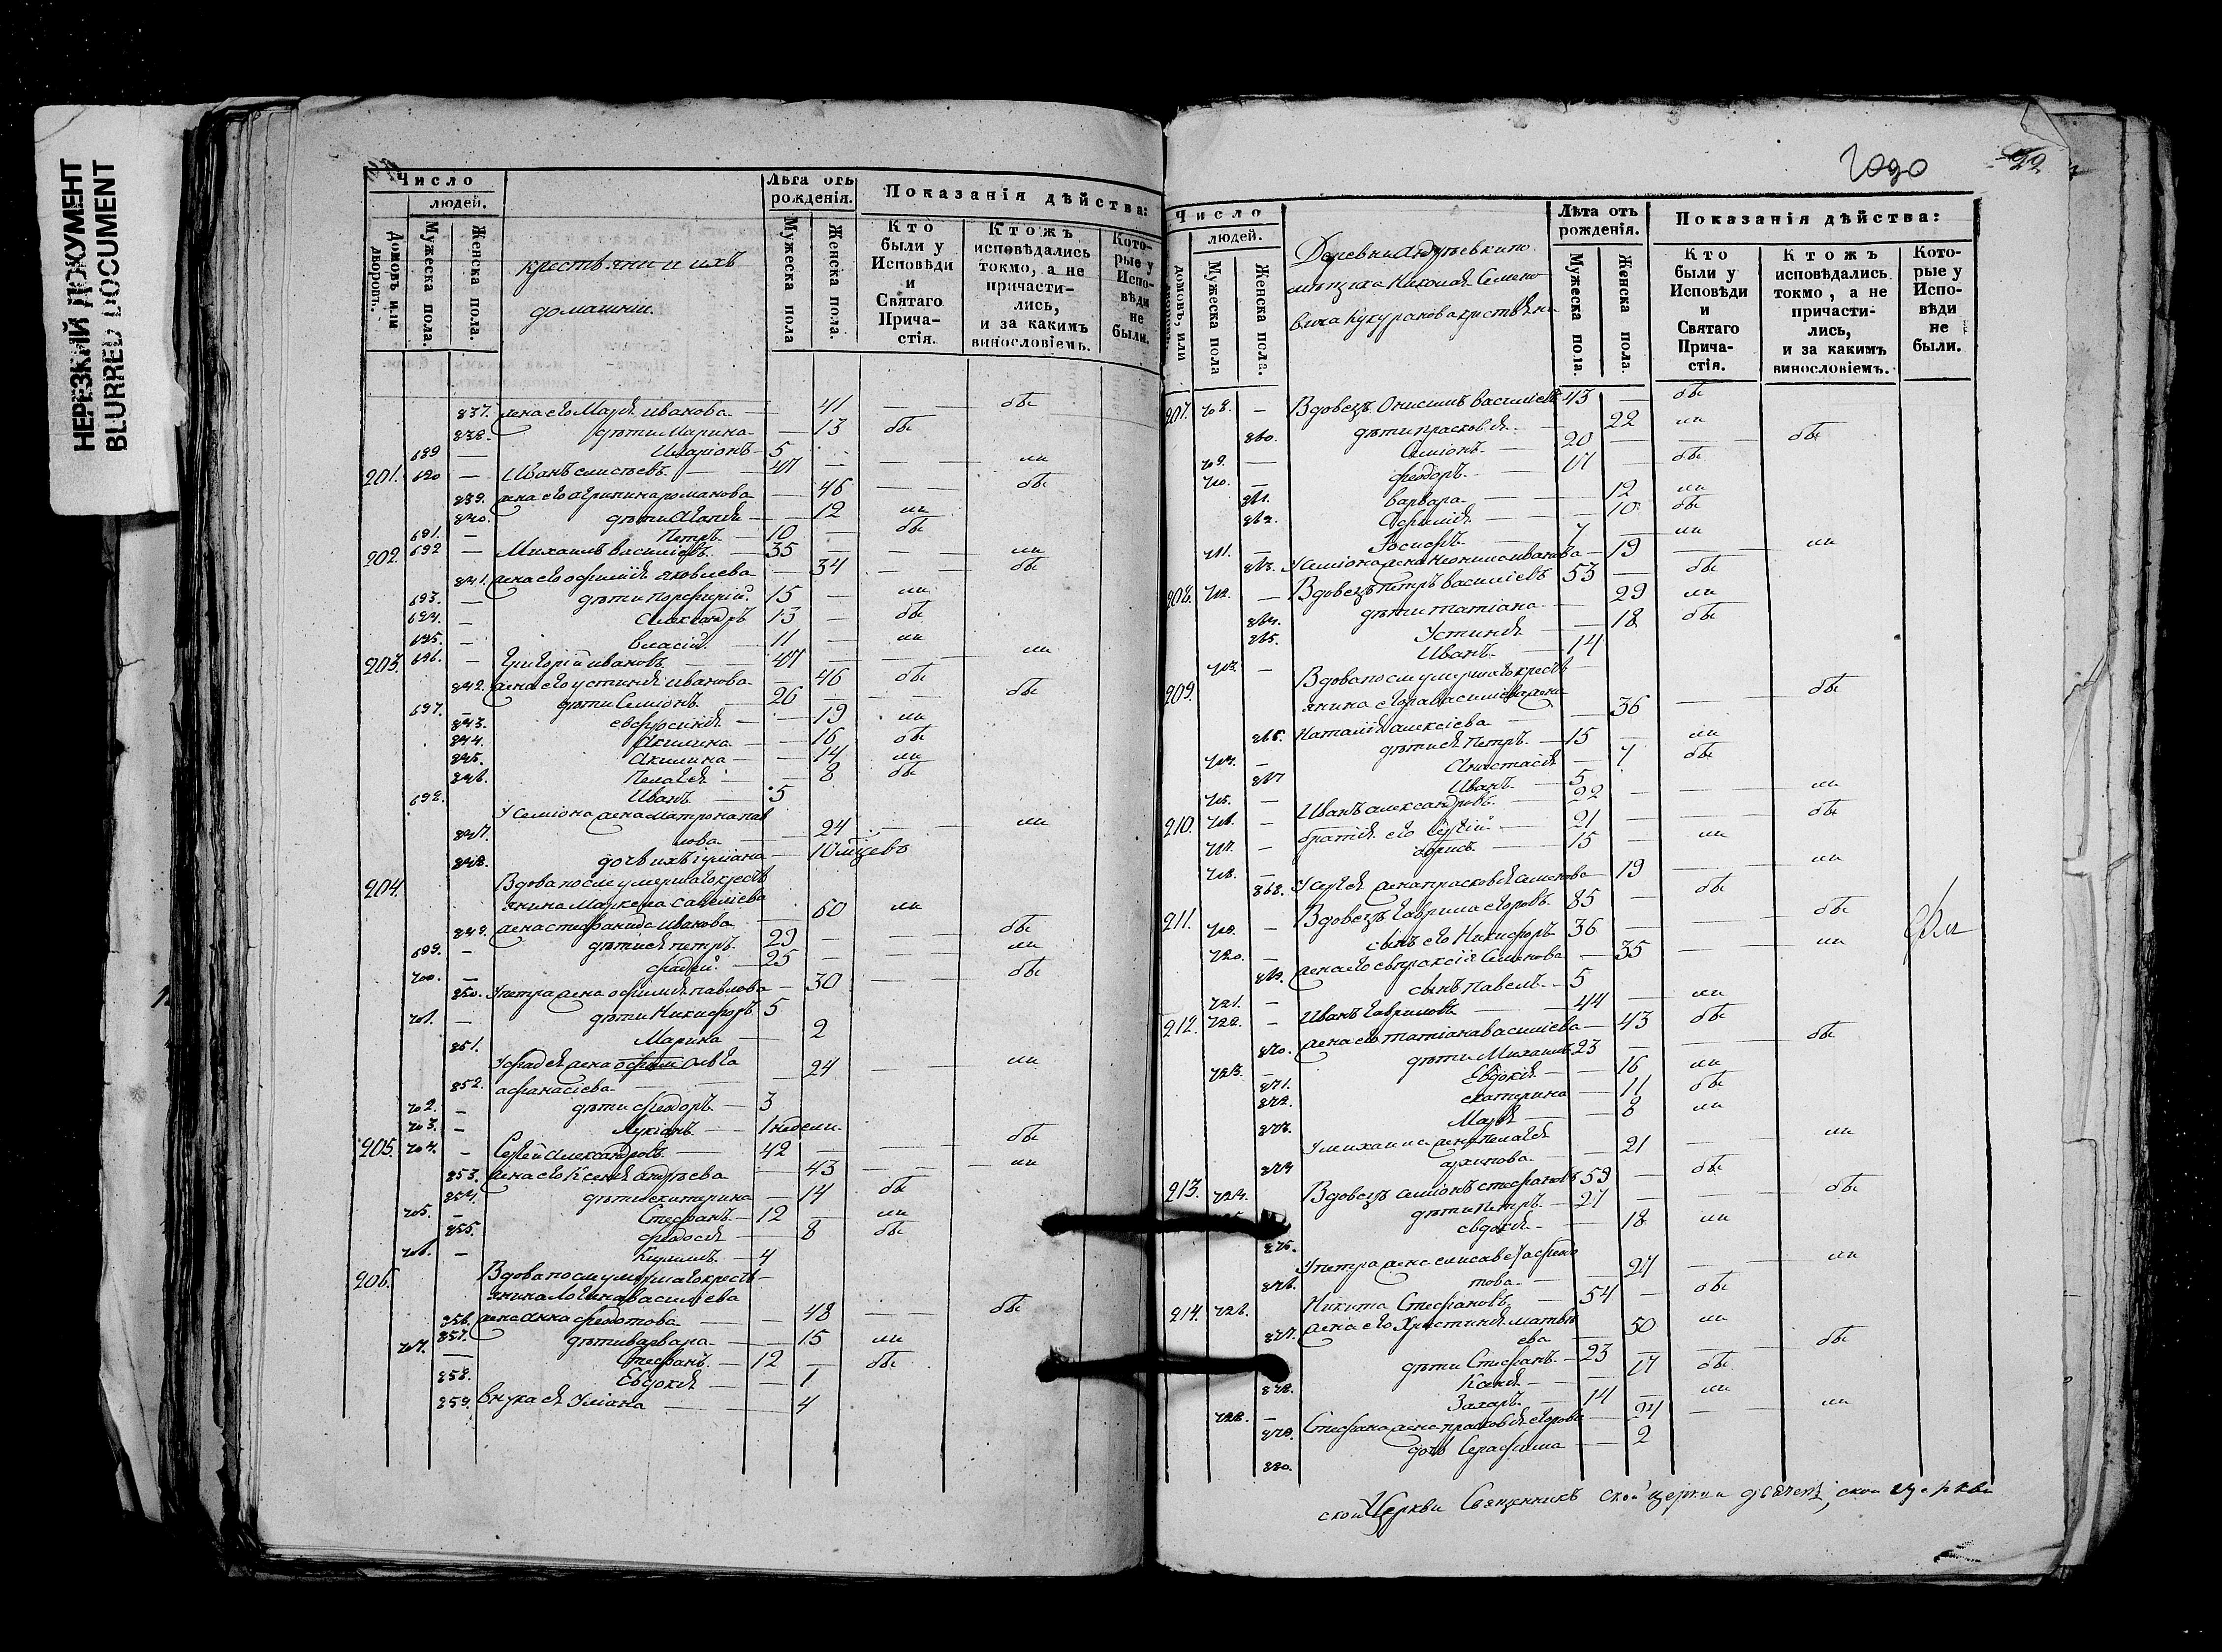 НЕРЕЗКИЙ ДОКУМЕНТ
BLURRED DOCUMENT
Число
людей.
Домовъ или дворовъ.
Мужеска пола.
Женска пола.
крестьяни и ихъ
домашніи.
Лѣта отъ рожденія.
Мужеска пола
Женска пола.
Показанія дѣйства:
Кто были у Исповѣди и Святаго Прича-стія.
Ктожъ исповѣдались токмо, а не причасти-лись, и за какимъ винословіемъ.
Кото-рые у Испо-вѣди не были.
837. жена его Марѳя иванова — 41 — бы
838. дѣти Марина — 13 бы
689 — Иларіонъ — 5
201. 690 — Иванъ — 47 — — ли
839. жена его агрипина романова — 46 — бы
840. дѣти Агаѳія — 12 ли
691. — Петръ — 10 — бы
202. 692 — Михаилъ василіевъ. — 35 — — ли
841. жена его офимія яковлева — 34 — бы
693. — дѣти порфирій. 15 — ли
694. — Александръ 13 — бы
695. — власій. 11 — ли
203. 696. — Григорій ивановъ — 47 — — ли
842. жена его устинія иванова — 46 бы
697. — дѣти Симіонъ. — 26 — — бы
843. евфросинія — 19 ли
844. Акилина — 16 бы
845. Акилина — 14 ли
846. Пелагія — 8 бы
698. Иванъ — 5
У Симіона жена матрона пав
847. лова — 24 — ли
848. дочь ихъ іуліана — 10 мѣсецовъ
204. Вдова после умершаго кресть
янина Маркела савеліева
849. жена стефанида иванова — 60 ли
699. — дѣти ея петръ. 29 — — бы
700. — фадей. — 25 — — ли
850. У петра жена офимія павлова — 30 — бы
701. — дѣти Никифоръ 5
851. Марина — 2
У фадея жена офим олга
852. афанасіева — 24 — ли
702. — дѣти феодоръ. — 3
703. — Лукіанъ — 1 недели.
205. 704. — Сергей Александровъ. — 42 — — бы
853. жена его Ксенія андреева — 43 — ли
854. дѣти екатерина — 14 бы
705. — Стефанъ. — 12 — ли
855. феодосія — 8 бы
706. — Кирилъ. — 4
206. Вдова после умершаго кресть-
янина Логина василіева
856. жена анна федотова — 48 — бы
857. дѣти варвара — 15 ли
707. — Стефанъ. — 12 — бы
858. Евдокія — 1
859. внука ея Уліана — 4
года
Число
людей.
домовъ, или дворовъ.
Мужеска пола
Женска пола.
Деревни Андреевки по
мѣщика Николая Семено
вича крестьяни
Лѣта отъ рожденія.
Мужеска пола.
Женска пола.
Показанія дѣйства:
Кто были у Исповѣди и Святаго Прича-стія.
Ктожъ исповѣдались токмо, а не причасти-лись, и за какимъ винословіемъ.
Кото-рые у Испо-вѣди не были.
207. 708. — Вдовецъ Онисимъ василіевъ 43 — бы
860. дѣти прасковія. — 22 ли
709. — Симіонъ. — 20 — — бы
710. — феодоръ. — 17 — бы
861. варвара — 12 ли
862. Офимія — 10 бы
711. — Іосифъ. — 7 — ли
863. У Симіона жена неонила иванова — 19 — ли
208. 712. — Вдовецъ петръ василіевъ 53 — бы
864. дѣти татіана — 29 ли
865. Устинія — 18 бы
713. — Иванъ. — 14
209. Вдова после умершаго кресть
янина егора василіева жена
866. Наталія алексіева — 36 — бы
714. — дѣти ея Петръ. — 15 — ли
867 Анастасія — 7 бы
715. — Иванъ. — 5
210. 716. — Иванъ александровъ. — 22 — — ли
717. — братія его Сергій. — 21 — — бы
718. — борисъ. — 15 — ли
868. У сергея жена прасковія семенова — 19 — ли
211. 719. — Вдовецъ Гаврила егоровъ. 85 — бы
720. — сынъ его Никифоръ 36 — — бы
869. жена его евпраксія Семенова — 35 — ли
721. — сынъ павелъ. — 5
212. 722. — Иванъ гавриловъ — 44 — ли
870. жена его татіана василіева — 43 бы
723. — дѣти Михаилъ 23 — — бы
871. Евдокія — 16 ли
872. екатерина — 11 бы
873. Марѳя — 8 ли
У михаила жена пелагія
874 архипова — 21 — ли
213. 724. — Вдовецъ симіонъ стефановъ 59 — бы
дѣти Петръ. — 27 — — бы
875. евдокія — 18 ли
У петра жена елисавета
876. това — 27 — ли
214. 726. Никита Стефановъ — 54 — бы
877. жена его Христинія матвѣ
ева — 50 ли
дѣти Стефанъ. — 23 — — бы
878. Ксенія — 17 бы
728. — Захаръ. — 14 — ли
879. Стефана жена прасковія егорова — 24 — ли
880. дочь Серафима — 2
ской Церкви Священникъ ской церкви ской церкви